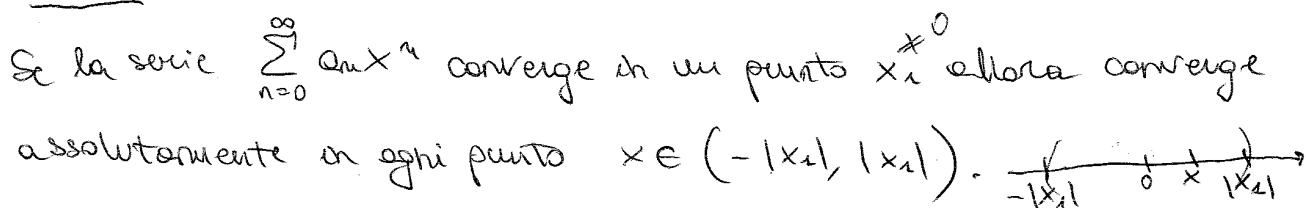 Se la serie ∑_{n=0}^{∞} aₙxⁿ converge in un punto x₁ ≠ 0 allora converge
assolutamente in ogni punto x ∈ (-|x₁|, |x₁|). -|x₁| 0 x |x₁|